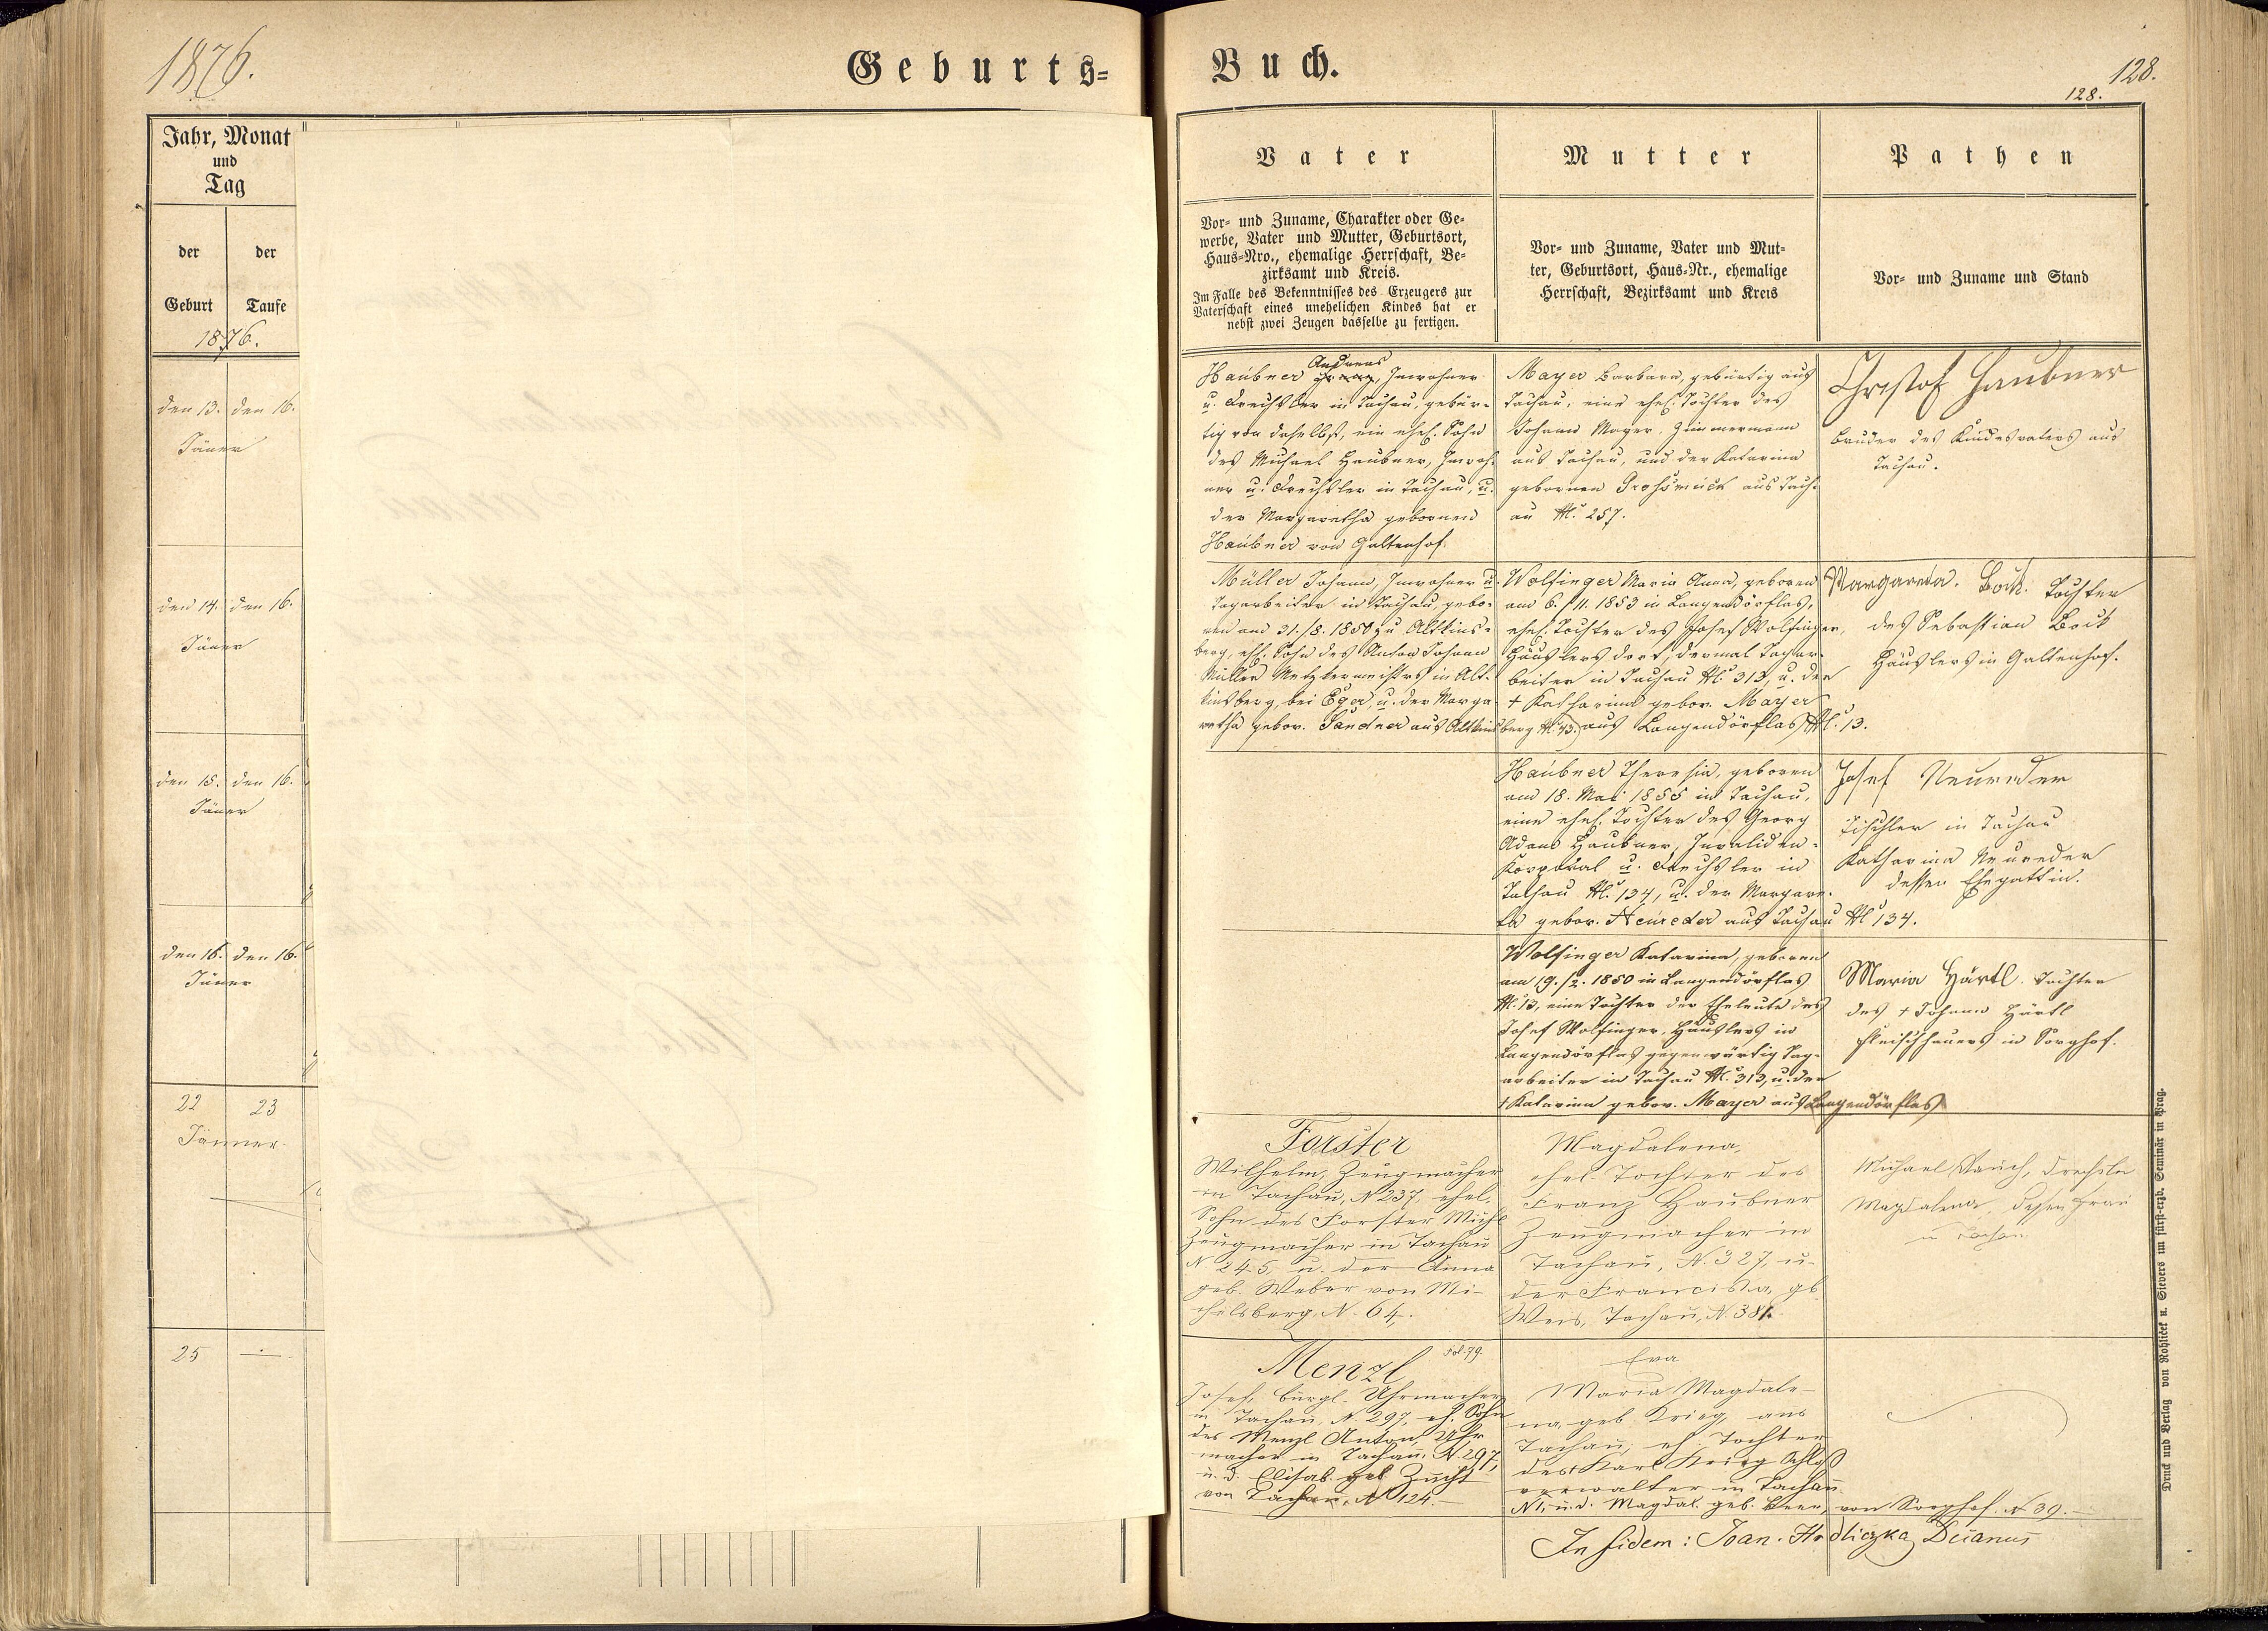 1876.
Geburts-
Buch.
128.
128.
Jahr, Monat
und
Tag
der
der
Geburt
Taufe
1876.
den 13. den 16.
Jäner
den 14. den 16.
Jäner
den 15. den 16.
Jäner
den 16. den 16.
Jäner
22 23
Jänner.
25 —
Vater
Vor- und Zuname, Charakter oder Ge-
werbe, Vater und Mutter, Geburtsort,
Haus-Nro., ehemalige Herrschaft, Be-
zirksamt und Kreis.
Im Falle des Bekenntnisses des Erzeugers zur
Vaterschaft eines unehelichen Kindes hat er
nebst zwei Zeugen dasselbe zu fertigen.
Mutter
Vor- und Zuname, Vater und Mut-
ter, Geburtsort, Haus-Nr., ehemalige
Herrschaft, Bezirksamt und Kreis
Pathen
Vor- und Zuname und Stand
Andreas
Haubner, Inwohner
u. Drechsler in Tachau, gebür-
tig von daselbst, ein ehel. Sohn
des Michael Haubner, Inwoh-
ner u. Drechsler in Tachau, u.
der Margaretha gebornen
Haubner von Galtenhof.
Mayer Barbara, gebürtig aus
Tachau, eine ehel. Tochter des
Johann Mayer, Zimmermann
aus Tachau, und der Katarina
gebornen aus Tach-
au N. 257.
Christof Haubner
Bruder des Kindesvaters aus
Tachau.
Müller Johann, Inwohner u.
Tagarbeiter in Tachau, gebo-
ren am 31./8. 1850 zu Altkins-
berg, ehl. Sohn des Anton Johann
Müller Metzkermeisters in Alt-
kinsberg, bei Eger, u. der Marga-
retha gebor. Sandner aus Altkinsberg N. 43.
Wolfinger Maria Anna, geboren
am 6./11. 1853 in Langendörflas,
ehel. Tochter des Josef Wolfinger,
Häuslers dort, dermal Tagar-
beiter in Tachau N. 313, u. der
+ Katharina gebor. Mayer
aus Langendörflas N. 13.
Margareta Bock. Tochter
des Sebastian Bock
Häuslers in Galtenhof.
Haubner Theresia, geboren
am 18. Mai 1855 in Tachau,
eine ehel. Tochter des Georg
Adam Haubner, Invaliden-
Korporal u. Drechsler in
Tachau N. 134, u. der Margare-
ta gebor. Neureder aus Tachau N 134.
Josef Neureder
Tischler in Tachau
Katharina Neureder
dessen Ehegattin.
Wolfinger Katarina, geboren
am 19./2. 1850 in Langendörflas
N. 13, eine Tochter der Eheleute des
Josef Wolfinger, Häuslers in
Langendörflas gegenwärtig Tag-
arbeiter in Tachau N. 313, u. der
+ Katarina gebor. Mayer aus Langendörflas
Maria Härtl. Tochter
des + Johann Härtl
Fleischhauers in Sorghof.
Forster
Wilhelm, Zeugmacher
in Tachau, N 237, ehel.
Sohn des Forster Michl
Zeugmacher in Tachau
N. 245, u. der Anna
geb. Weber von Mi-
chelsberg, N. 64.
Magdalena,
ehel. Tochter des
Franz Haubner
Zeugmacher in
Tachau, N. 327, u.
der Franciska, gb.
Weis, Tachau, N. 381.
Michael Rauch, Drechsler
Magdalena, dessen Frau
in Tachau
Fol. 79.
Menzl
Josef, bürgl. Uhrmacher
in Tachau, N. 297, eh. Sohn
des Menzl Anton, Uhr-
macher in Tachau, N. 297,
u. d. Elisab. geb. Zucht
von Tachau, N 124.—
Eva
Maria Magdale-
na, geb. Krieg, aus
Tachau, eh. Tochter
des Karl Krieg Schloß
verwalter in Tachau
N 1, u. d. Magdal. geb. Beer, von Sorghof. N 39.—
In fidem: Joan. Hrdliczka, Decanus
Druck und Verlag von Rohliček u. Sievers im fürst-erzb. Seminär in Prag.